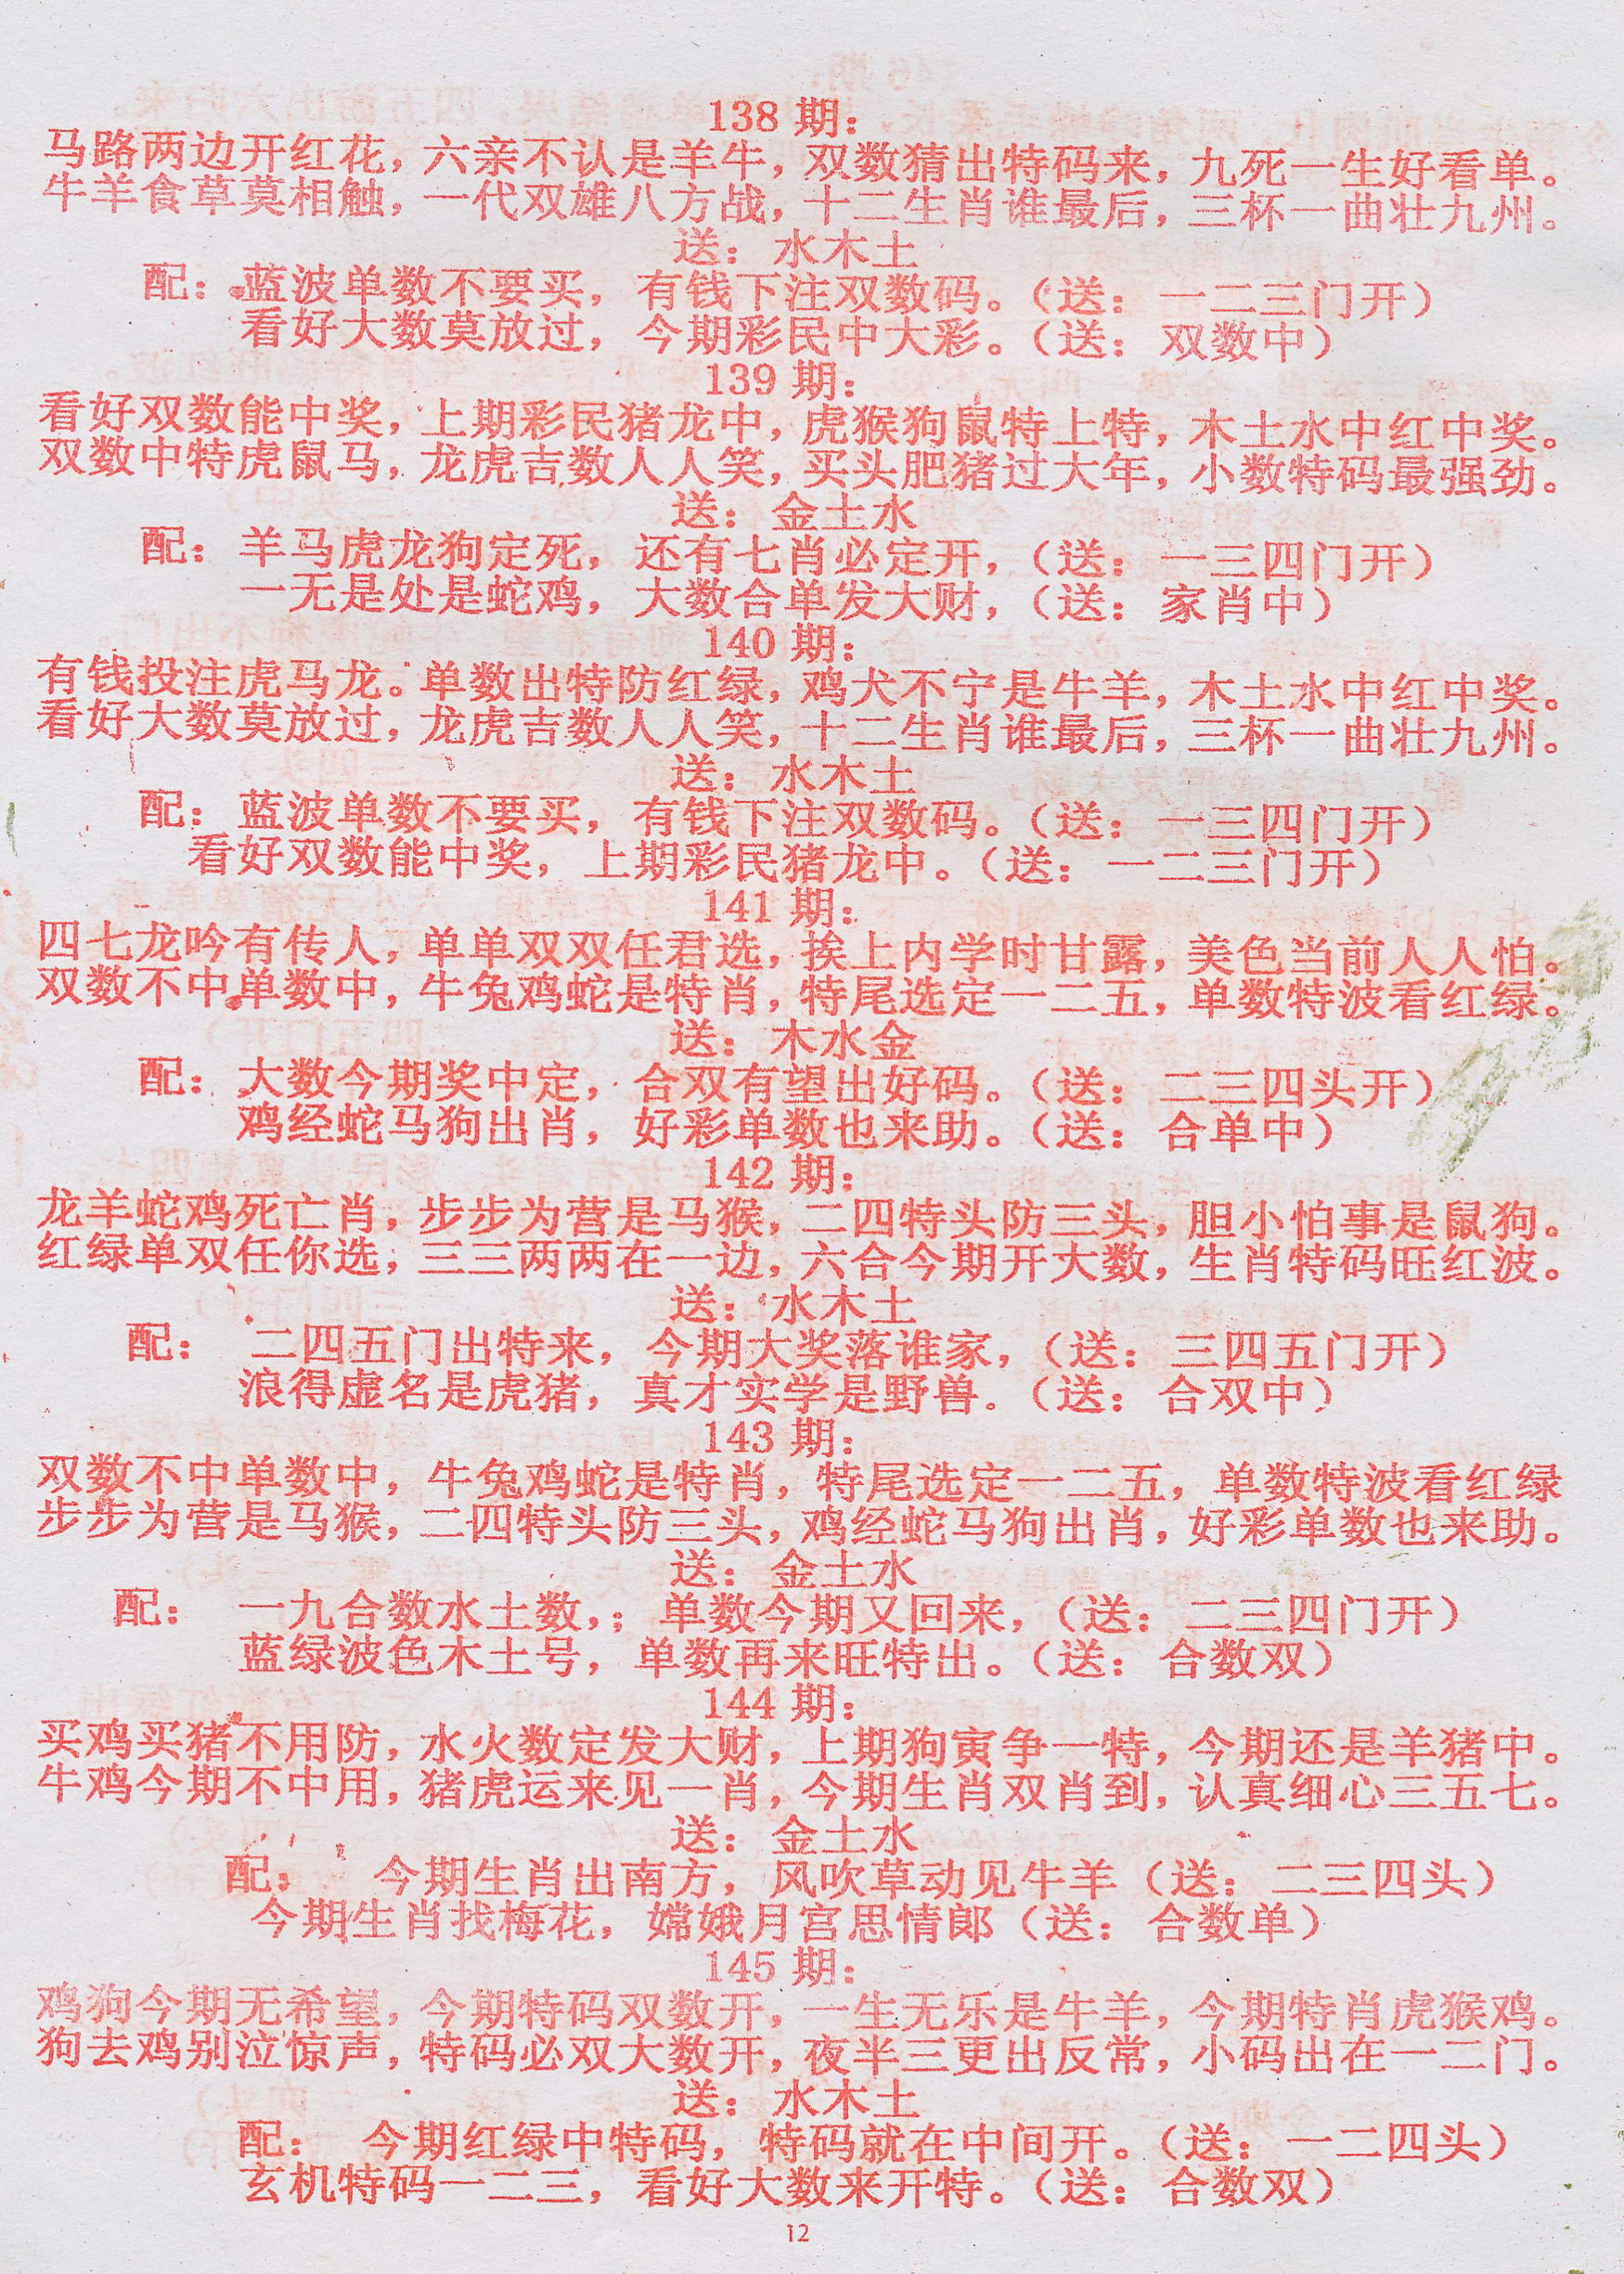 138 期：
马路两边开红花，六亲不认是羊牛，双数猜出特码来，九死一生好看单。
牛羊食草莫相触，一代双雄八方战，十二生肖谁最后，三杯一曲壮九州。
送：水木土
配：蓝波单数不要买，有钱下注双数码。（送：一二三门开）
看好大数莫放过，今期彩民中大彩。（送：双数中）
139 期：
看好双数能中奖，上期彩民猪龙中，虎猴狗鼠特上特，木土水中红中奖。
双数中特虎鼠马，龙虎吉数人人笑，买头肥猪过大年，小数特码最强劲。
送：金土水
配：羊马虎龙狗定死，还有七肖必定开，（送：一三四门开）
一无是处是蛇鸡，大数合单发大财，（送：家肖中）
140 期：
有钱投注虎马龙。单数出特防红绿，鸡犬不宁是牛羊，木土水中红中奖。
看好大数莫放过，龙虎吉数人人笑，十二生肖谁最后，三杯一曲壮九州。
送：水木土
配：蓝波单数不要买，有钱下注双数码。（送：一三四门开）
看好双数能中奖，上期彩民猪龙中。（送：一二三门开）
141 期：
四七龙吟有传人，单单双双任君选，挨上内学时甘露，美色当前人人怕。
双数不中单数中，牛兔鸡蛇是特肖，特尾选定一二五，单数特波看红绿。
送：木水金
配：大数今期奖中定，合双有望出好码。（送：二三四头开）
鸡经蛇马狗出肖，好彩单数也来助。（送：合单中）
142 期：
龙羊蛇鸡死亡肖，步步为营是马猴，二四特头防三头，胆小怕事是鼠狗。
红绿单双任你选；三三两两在一边，六合今期开大数，生肖特码旺红波。
送：水木土
配：二四五门出特来，今期大奖落谁家，（送：三四五门开）
浪得虚名是虎猪，真才实学是野兽。（送：合双中）
143 期：
双数不中单数中，牛兔鸡蛇是特肖，特尾选定一二五，单数特波看红绿
步步为营是马猴，二四特头防三头，鸡经蛇马狗出肖，好彩单数也来助。
送：金土水
配：一九合数水土数，；单数今期又回来，（送：二三四门开）
蓝绿波色木土号，单数再来旺特出。（送：合数双）
144 期：
买鸡买猪不用防，水火数定发大财，上期狗寅争一特，今期还是羊猪中。
牛鸡今期不中用，猪虎运来见一肖，今期生肖双肖到，认真细心三五七。
送：金土水
配：今期生肖出南方，风吹草动见牛羊（送：二三四头）
今期生肖找梅花，嫦娥月宫思情郎（送：合数单）
145 期：
鸡狗今期无希望，今期特码双数开，一生无乐是牛羊，今期特肖虎猴鸡。
狗去鸡别泣惊声，特码必双大数开，夜半三更出反常，小码出在一二门。
送：水木土
配：今期红绿中特码，特码就在中间开。（送：一二四头）
玄机特码一二三，看好大数来开特。（送：合数双）
12